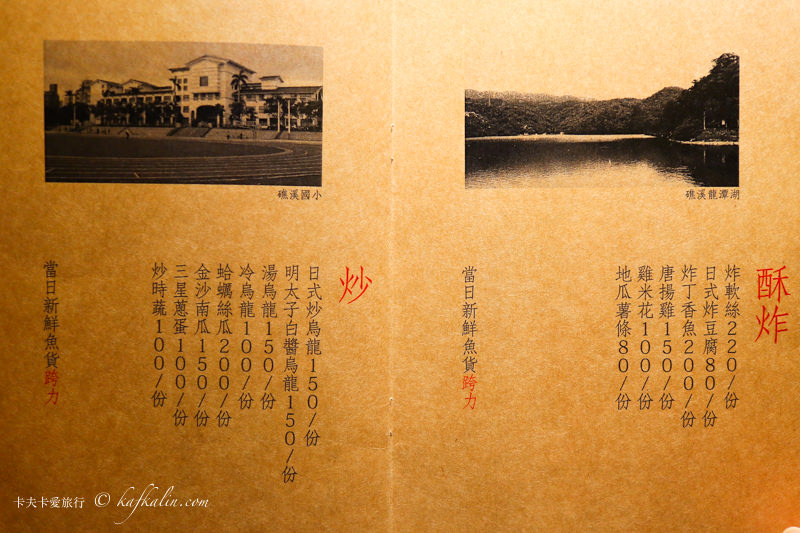 湖潭龍溪礁
酥炸
炸軟絲220/份
日式炸豆腐80/份
炸丁香魚200/份
唐揚雞150/份
雞米花100/份
地瓜薯條80/份
當日新鮮魚貨跨力
小國溪礁
炒
日式炒烏龍150/份
明太子白醬烏龍150/份
湯烏龍150/份
冷烏龍100/份
蛤蠣絲瓜200/份
金沙南瓜150/份
三星蔥蛋100/份
炒時蔬100/份
當日新鮮魚貨跨力
卡夫卡愛旅行 © kafkalin.com